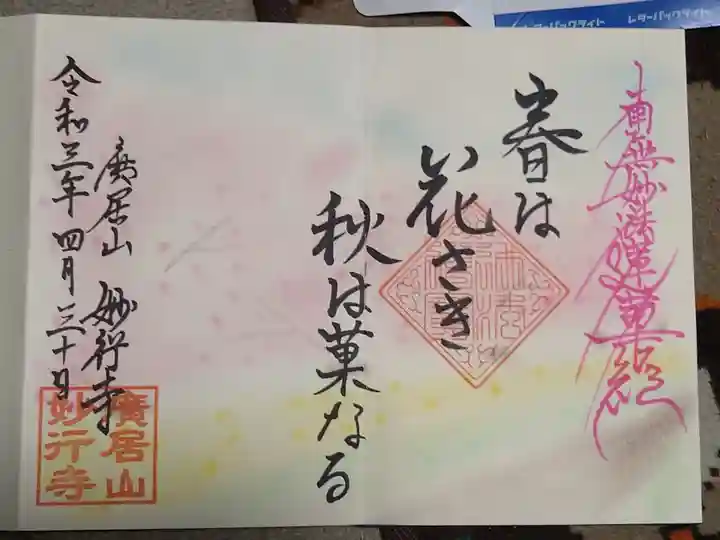 南無妙法蓮華経
春は
花さき
秋は菓なる
廣居山 妙行寺
令和三年四月三十日
廣居山
妙行寺
レターパックライト